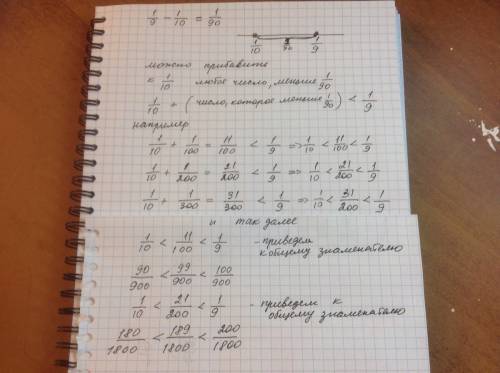 1/9 - 1/10 = 1/90
1/10 1/90 1/9
можно прибавить
к 1/10 любое число, меньше 1/90
1/10 + (число, которое меньше 1/90) < 1/9
например
1/10 + 1/100 = 11/100 < 1/9 => 1/10 < 11/100 < 1/9
1/10 + 1/200 = 21/200 < 1/9 => 1/10 < 21/200 < 1/9
1/10 + 1/300 = 31/300 < 1/9 => 1/10 < 31/200 < 1/9
и так далее
1/10 < 11/100 < 1/9 - приведем к общему знаменателю
90/900 < 99/900 < 100/900
1/10 < 21/200 < 1/9 - приведем к общему знаменателю
180/1800 < 189/1800 < 200/1800